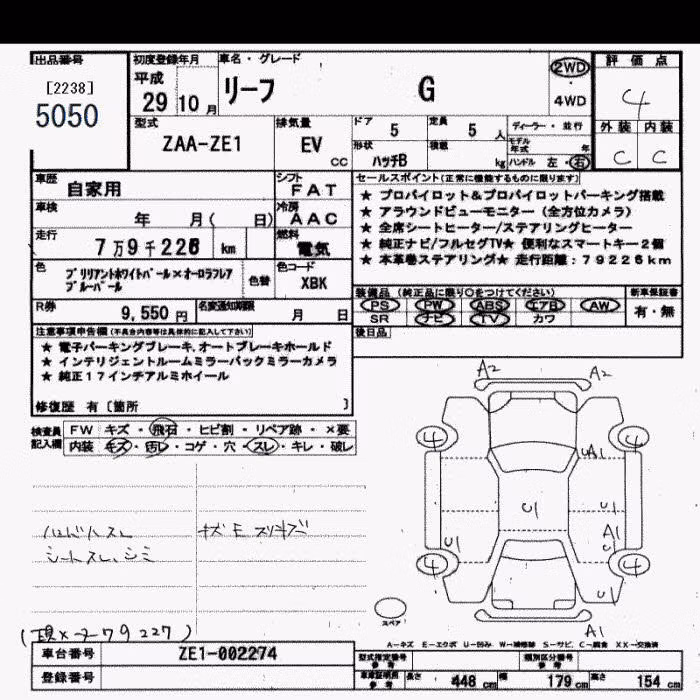 出品番号 初度登録年月 車名・グレード 評価点
[2238] 平成 リーフ G 2WD 4
5050 29 10月 ・4WD
型式 排気量 ドア 5 定員 5人 ディーラー・並行 外装 内装
ZAA-ZE1 EV cc 形状 ハッチB 積載 kg モデル年式 年 ハンドル 左・右 C C
車歴 自家用 シフト FAT セールスポイント(正常に機能するものに限ります)
★ プロパイロット&プロパイロットパーキング搭載
車検 年 月( 日) 冷房 AAC ★ アラウンドビューモニター(全方位カメラ)
★ 全席シートヒーター/ステアリングヒーター
走行 7万9千226 km 燃料 電気 ★ 純正ナビ/フルセグTV★ 便利なスマートキー2個
★ 本革巻ステアリング★ 走行距離:79226km
色 ブリリアントホワイトパール×オーロラフレア
ブルーパール 色替 色コード XBK
装備品(純正品に限り○をつけてください) 新車保証書
R券 9,550円 名変通知期限 月 日 PS PW ABS エアB AW 有・無
SR ナビ TV カワ
注意事項申告欄(不具合内容等は具体的に記入して下さい) 後日品
★ 電子パーキングブレーキ,オートブレーキホールド
★ インテリジェントルームミラーバックミラーカメラ
★ 純正17インチアルミホイール
修復歴 有 [箇所 ]
A2 A2
検査員記入欄 FW キズ・飛石・ヒビ割・リペア跡・×要
内装 キズ・汚レ・コゲ・穴・スレ・キレ・破レ
4 4
UA1
U1 U1
A1
U1 U
ハンドルスレ
シートスレ、シミ
4 4
U1
スペア
A1
79227)
A-キズ E-エクボ U-凹み W-補修跡 S-サビ C-腐食 XX-交換済
車台番号 ZE1-002274 型式指定番号 参考 類別区分番号 参考
登録番号 車庫証明用 参考 長さ 448cm 幅 179cm 高さ 154cm